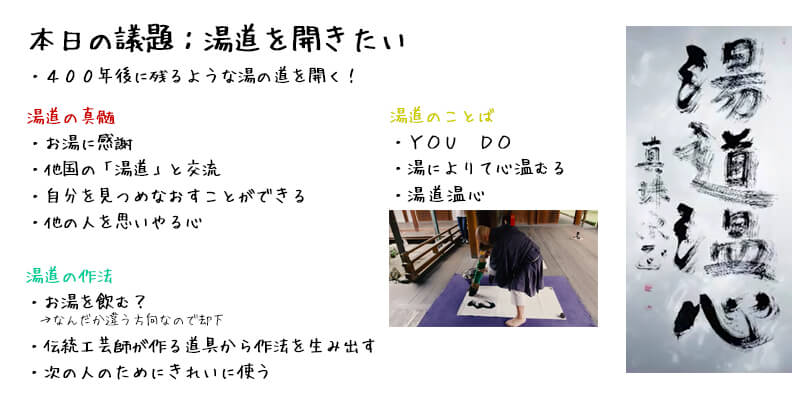 本日の議題;湯道を開きたい
・４００年後に残るような湯の道を開く!
湯道の真髄
・お湯に感謝
・他国の「湯道」と交流
・自分を見つめなおすことができる
・他の人を思いやる心
湯道の作法
・お湯を飲む?
→なんだか違う方向なので却下
・伝統工芸師が作る道具から作法を生み出す
・次の人のためにきれいに使う
湯道のことば
・ＹＯＵ　ＤＯ
・湯によりて心温むる
・湯道温心
湯道温心